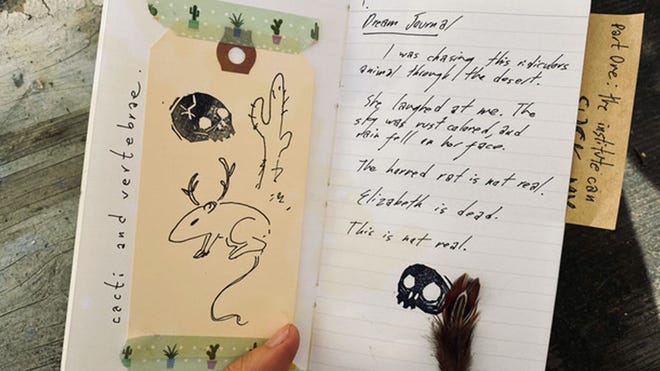 cacti and vertebrae.
Dream Journal
I was chasing this ridiculous
animal through the desert.
She laughed at me. The
sky was rust colored, and
rain fell on her face.
The horned rat is not real.
Elizabeth is dead.
This is not real.
Part One: the institute can